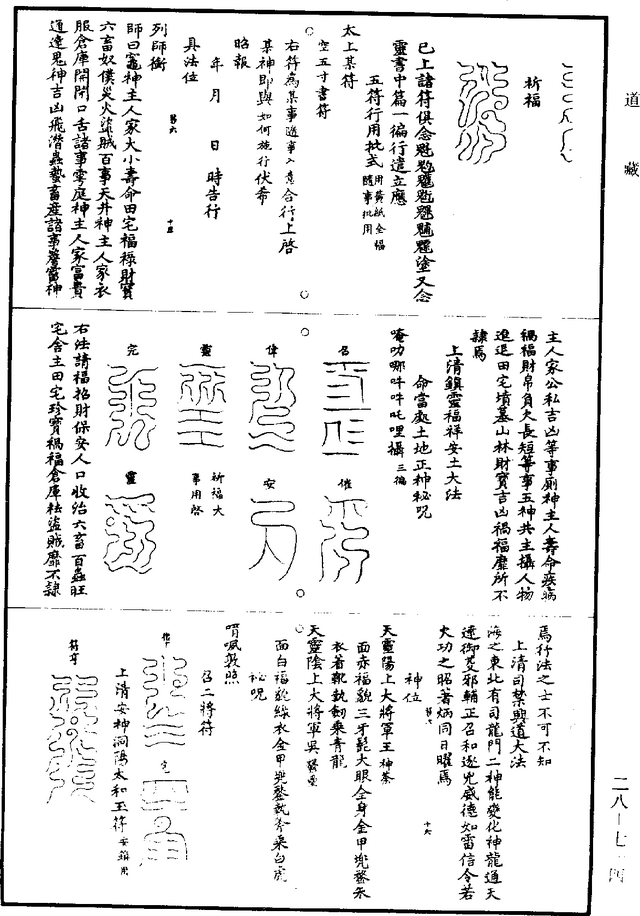 道藏
祈福
已上諸符俱念
塗又念
靈書中篇一徧行遣立應
五符行用批式
用黃紙全幅
隨事批用
太上某符
空五寸書符
右符為某事遂事入意合行上啓
某神即與如何施行伏希
昭報
年 月 日 時告行
具法位
列師銜
師曰竈神主人家大小壽命田宅福祿財寶
六畜奴僕災火盜賊百事天井神主人家衣
服倉庫開閉口舌諸事雩庭神主人家富貴
通達鬼神吉凶飛潛蟲蟄畜産諸事
神
主人家公私吉凶等事廁神主人壽命疾病
禍福財帛負欠長短等事五神共主攝人物
進退田宅墳墓山林財寶吉凶禍福靡所不
隸焉
上清鎮靈福祥安土大法
命當處土地正神秘呪
唵叻哪吽吽吒哩攝
三徧
召
催
偉
安
靈
祈福大
事用啓
完
靈
右法請福招財保安人口收治六畜百蟲旺
宅舍主田宅珍寶禍福倉庫祛盜賊靡不隸
焉行法之士不可不知
上清司禁興道大法
海之東北有司龍門二神能變化神龍通天
達御荒邪輔正召和逐兇威德如雷信令若
大功之昭著炳同日曜焉
神位
天靈陽上大將軍王
神茶
面赤福貌三牙髭大眼全身金甲兜鍪朱
衣著靴執劍乘青龍
天靈陰上大將軍吳
鬱壘
面白福貌綠衣金甲兜鍪執斧乘白虎
祕呪
召二將符
上清安神洞陽太和玉符
安鎮用
二八—七一四